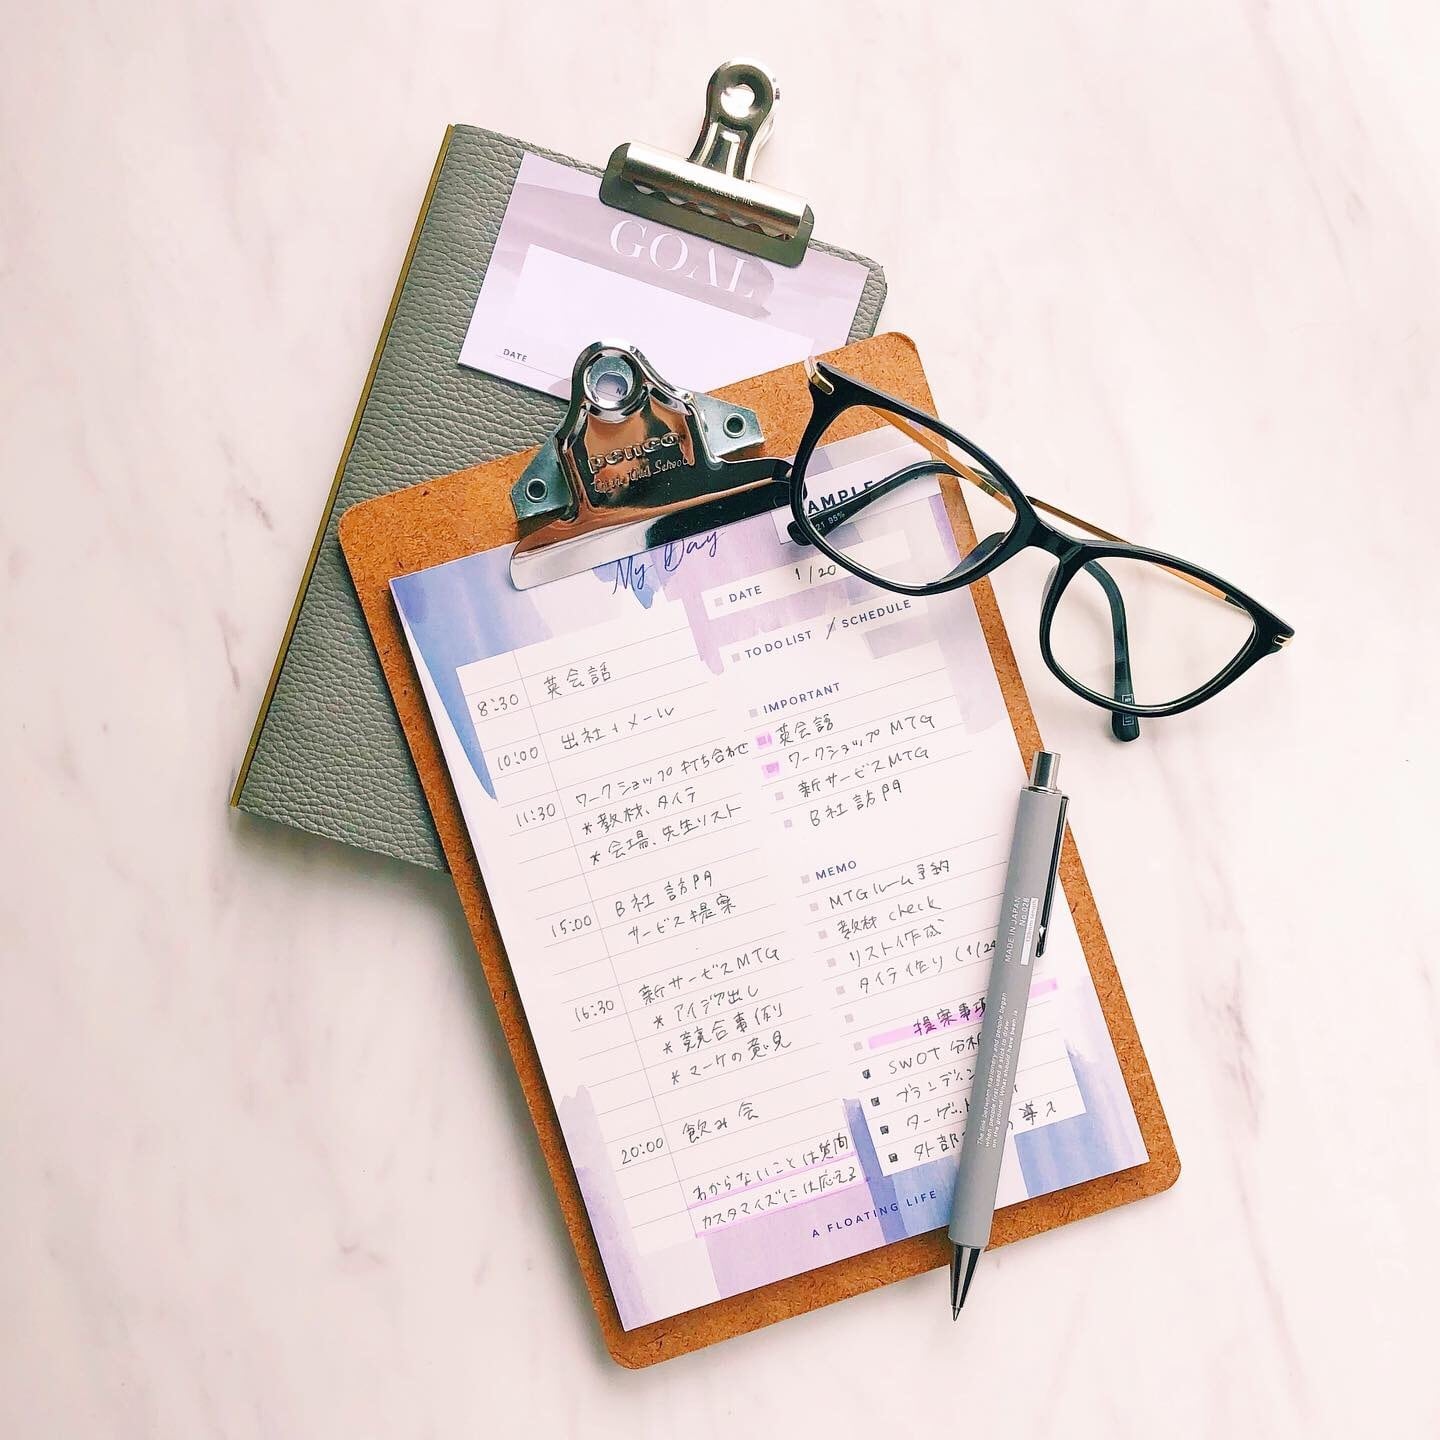 GOAL
DATE
penco
My Day
AMPLE
21 95%
DATE 1/20
TO DO LIST
SCHEDULE
8:30 英会話
10:00 出社+メール
11:30 ワークショップ打ち合わせ
*教材、タイテ
*会場、先生リスト
15:00 B社訪問
サービス提案
16:30 新サービスMTG
*アイデア出し
*競合事例
*マーケの意見
20:00 飲み会
わからないことは質問
カスタマイズには応える
IMPORTANT
英会話
ワークショップMTG
新サービスMTG
B社訪問
MEMO
MTGルーム予約
教材check
リスト作成
タイテ作り(1/24
提案事項
SWOT分析
ブランディン
ターゲット
外部
導入
A FLOATING LIFE
MADE IN JAPAN
No.028
The link between stationery and people began
when people first used a stick to draw
on the ground. What should have been is